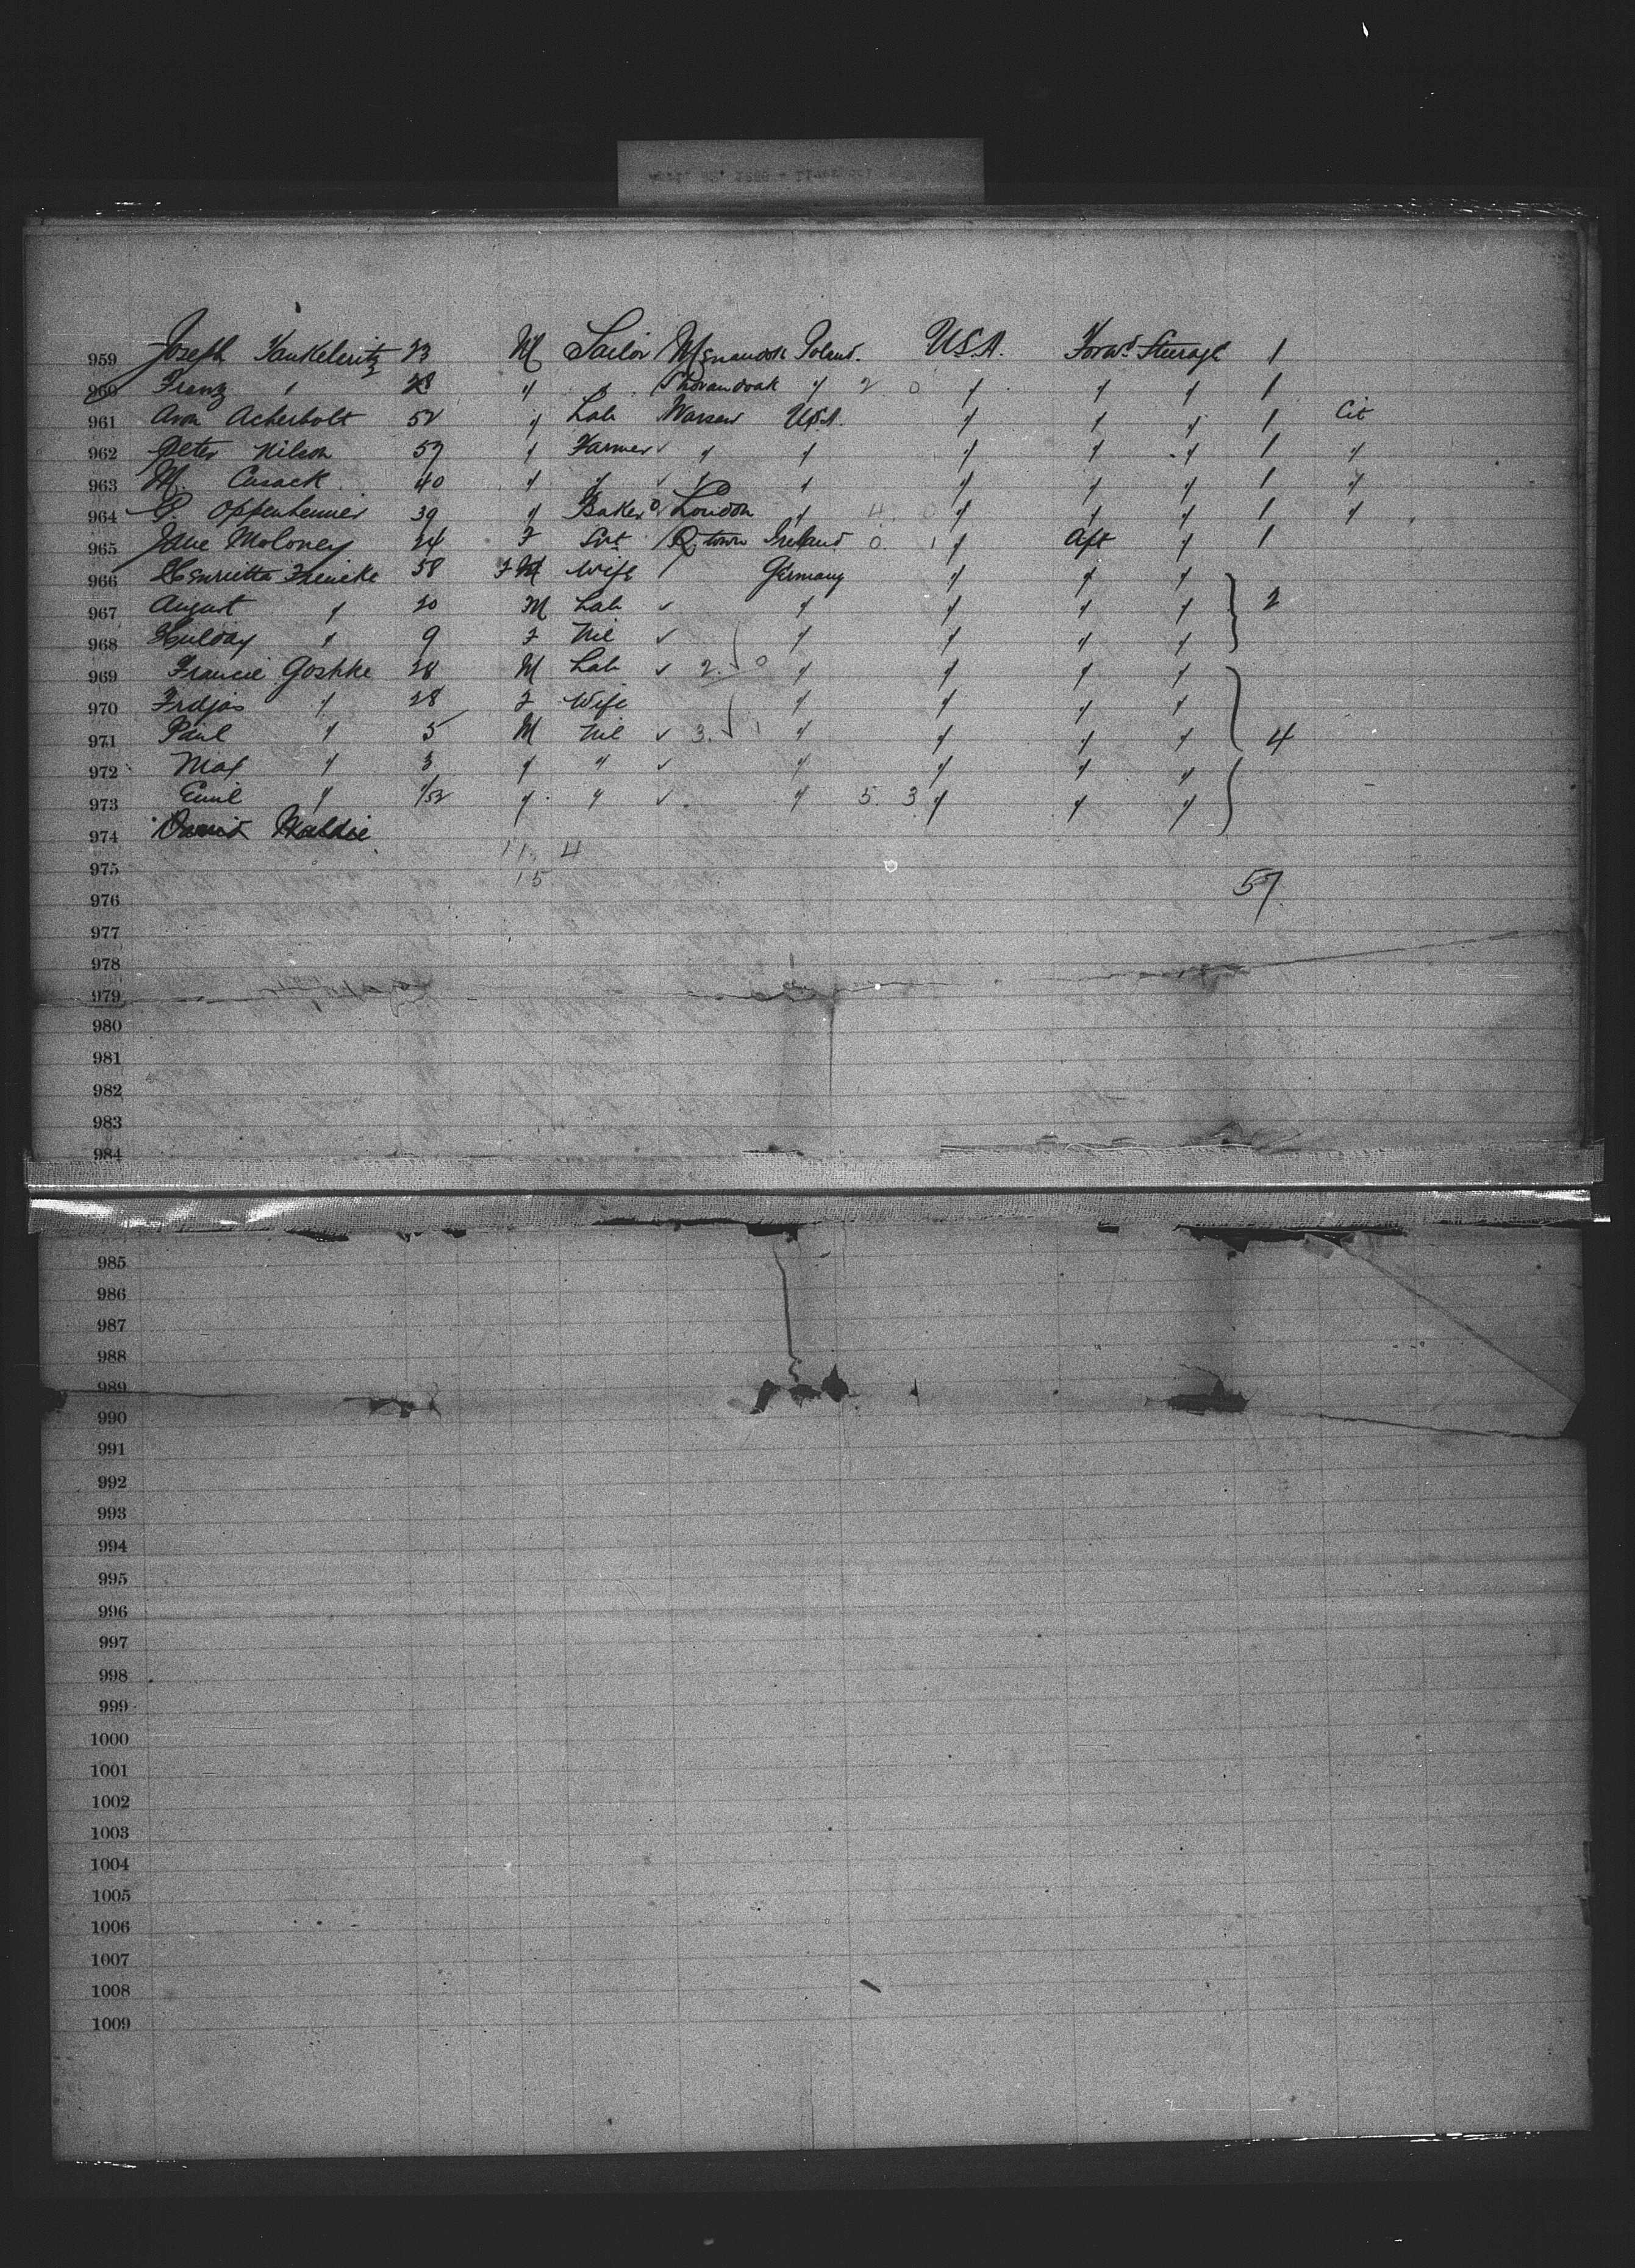 959 Joseph Yankeleritz 23 M Tailor Poland. U.S.A. Forwd Steerage 1
960 Franz " 28 " " " 2 0 " " " 1
961 Aron Acherbolt 52 " Lab Warsaw USA. " " " 1 Cit
962 Peter Nilson 57 " Farmer ✓ " " " " " 1 "
963 M. Cusack 40 " " ✓ " " " " " 1 "
964 G. Oppenheimer 39 " Baker London " 4 0 " " " 1 "
965 Jane Moloney 24 F Svt Q. town Ireland 0 1 " Aft " 1
966 Henrietta 58 F M Wife Germany " " "
967 August " 20 M Lab ✓ " " " " 2
968 " 9 F Nil ✓ " " " "
969 Goshke 28 M Lab ✓ 2. 0 " " " "
970 " 28 F Wife " " " "
971 Paul " 5 M Nil ✓ 3. 1 " " " " 4
972 Max " 3 " " ✓ " " " "
973 Emil " 1/52 " " ✓ " 5. 3 " " "
974 David
11. 4
975
15
57
976
977
978
979
980
981
982
983
984
985
986
987
988
989
990
991
992
993
994
995
996
997
998
999
1000
1001
1002
1003
1004
1005
1006
1007
1008
1009